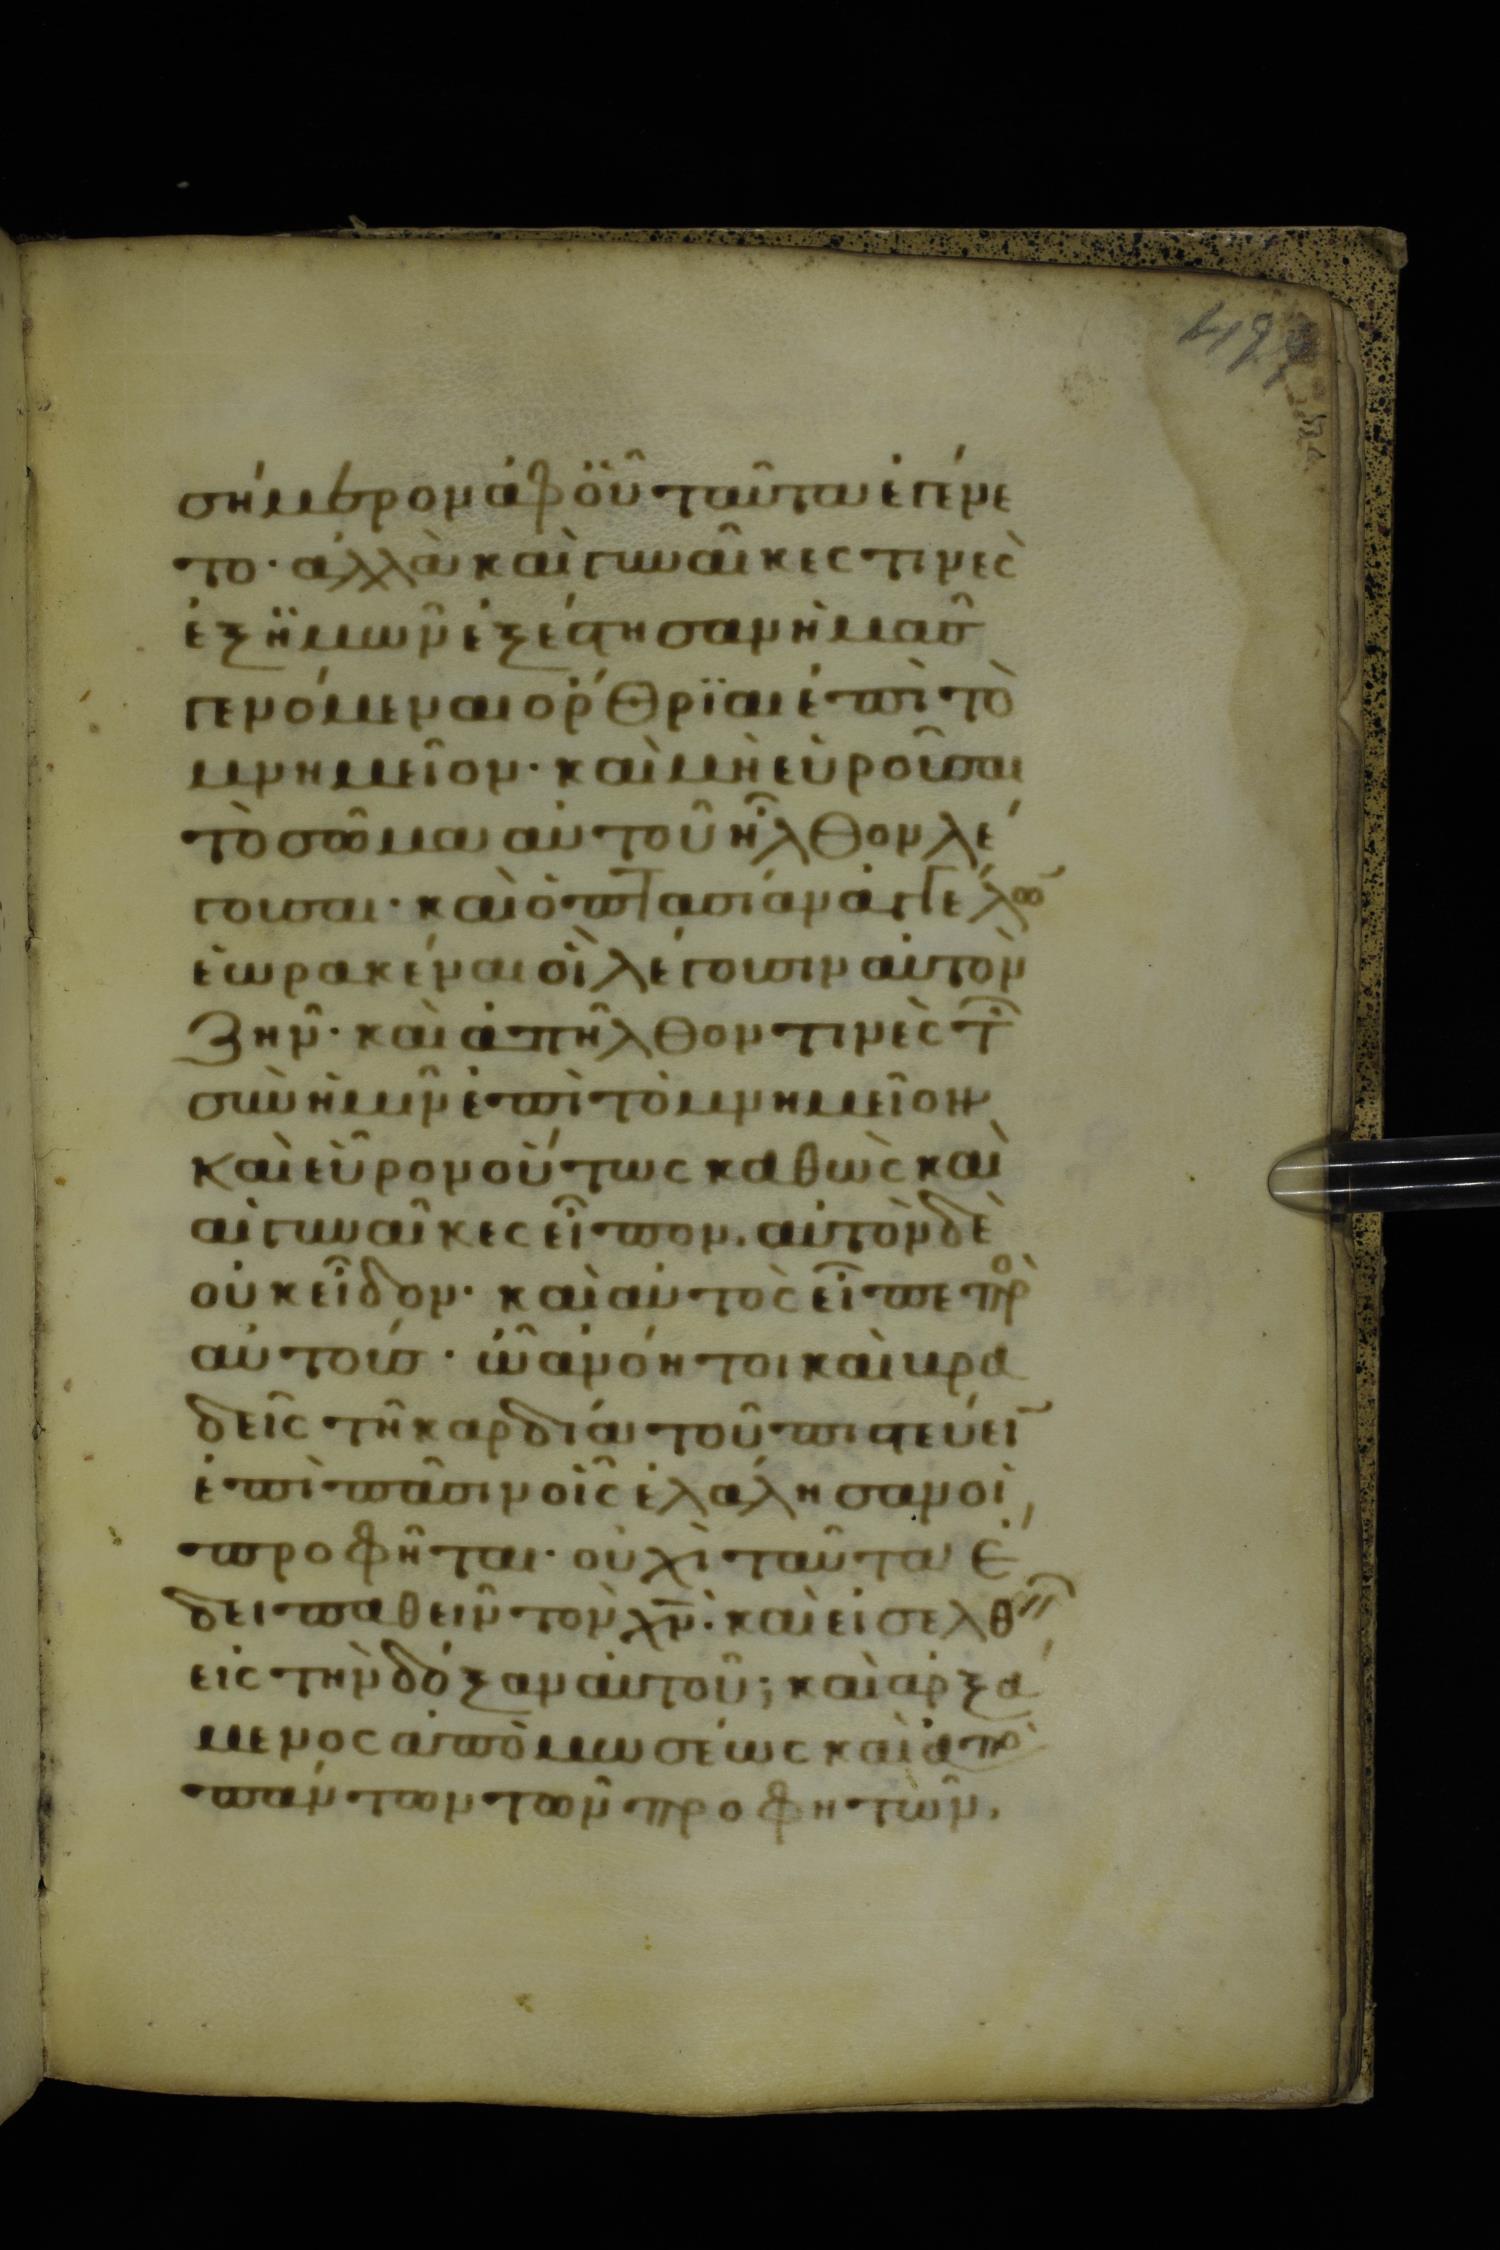 σήμερον ἀφ οὗ ταῦτα ἐγένε
το· ἀλλὰ καὶ γυναῖκες τινὲς
ἐξ ἡμῶν ἐξέστησαν ἡμᾶσ
γενόμεναι ὄρθρϊαι ἐπὶ τὸ
μνημεῖον· καὶ μὴ εὑροῦσαι
τὸ σῶμα αὐτοῦ ἦλθον λέ
γουσαι· καὶ ὀπτασίαν ἀγγέλω
ἑωρακέναι οἳ λέγουσιν αὐτὸν
ζῆν· καὶ ἀπῆλθον τινὲς τῶ
σὺν ἡμῖν ἐπὶ τὸ μνημεῖον
καὶ εὗρον οὕτως καθὼς καὶ
αἱ γυναῖκες εἶπον. αὐτὸν δὲ
οὐκ εἶδον· καὶ αὐτὸς εἶπε πρὸ
αὐτούσ· ὦ ἀνόητοι καὶ βρα
δεῖς τῆ καρδία τοῦ πιστεύει
ἐπὶ πᾶσιν οἷς ἐλάλησαν οἱ
προφῆται· οὐχὶ ταῦτα ἔ
δει παθεῖν τὸν χν· καὶ εἰσελθεῖν
εἰς τὴν δόξαν αὐτοῦ; καὶ ἀρξά
μενος ἀπὸ μωσέως καὶ ἀπὸ
πάντων τῶν προφητῶν.